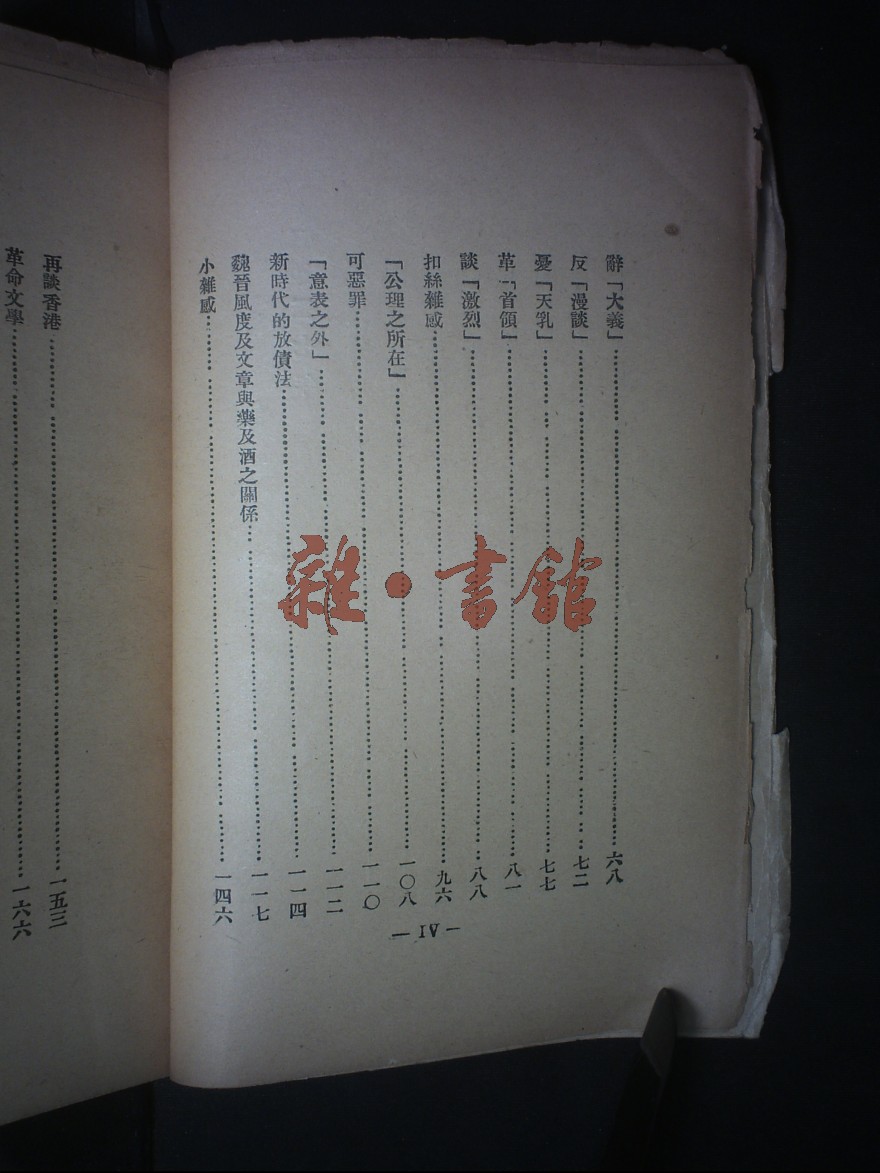 辭「大義」……六八
反「漫談」……七二
憂「天乳」……七七
革「首領」……八一
談「激烈」……八八
扣絲雜感……九六
「公理之所在」……一〇八
可惡罪……一一〇
「意表之外」……一一二
新時代的放債法……一一四
魏晉風度及文章與藥及酒之關係……一一七
小雜感……一四六
— IV —
再談香港……一五三
革命文學……一六六
雜·書館